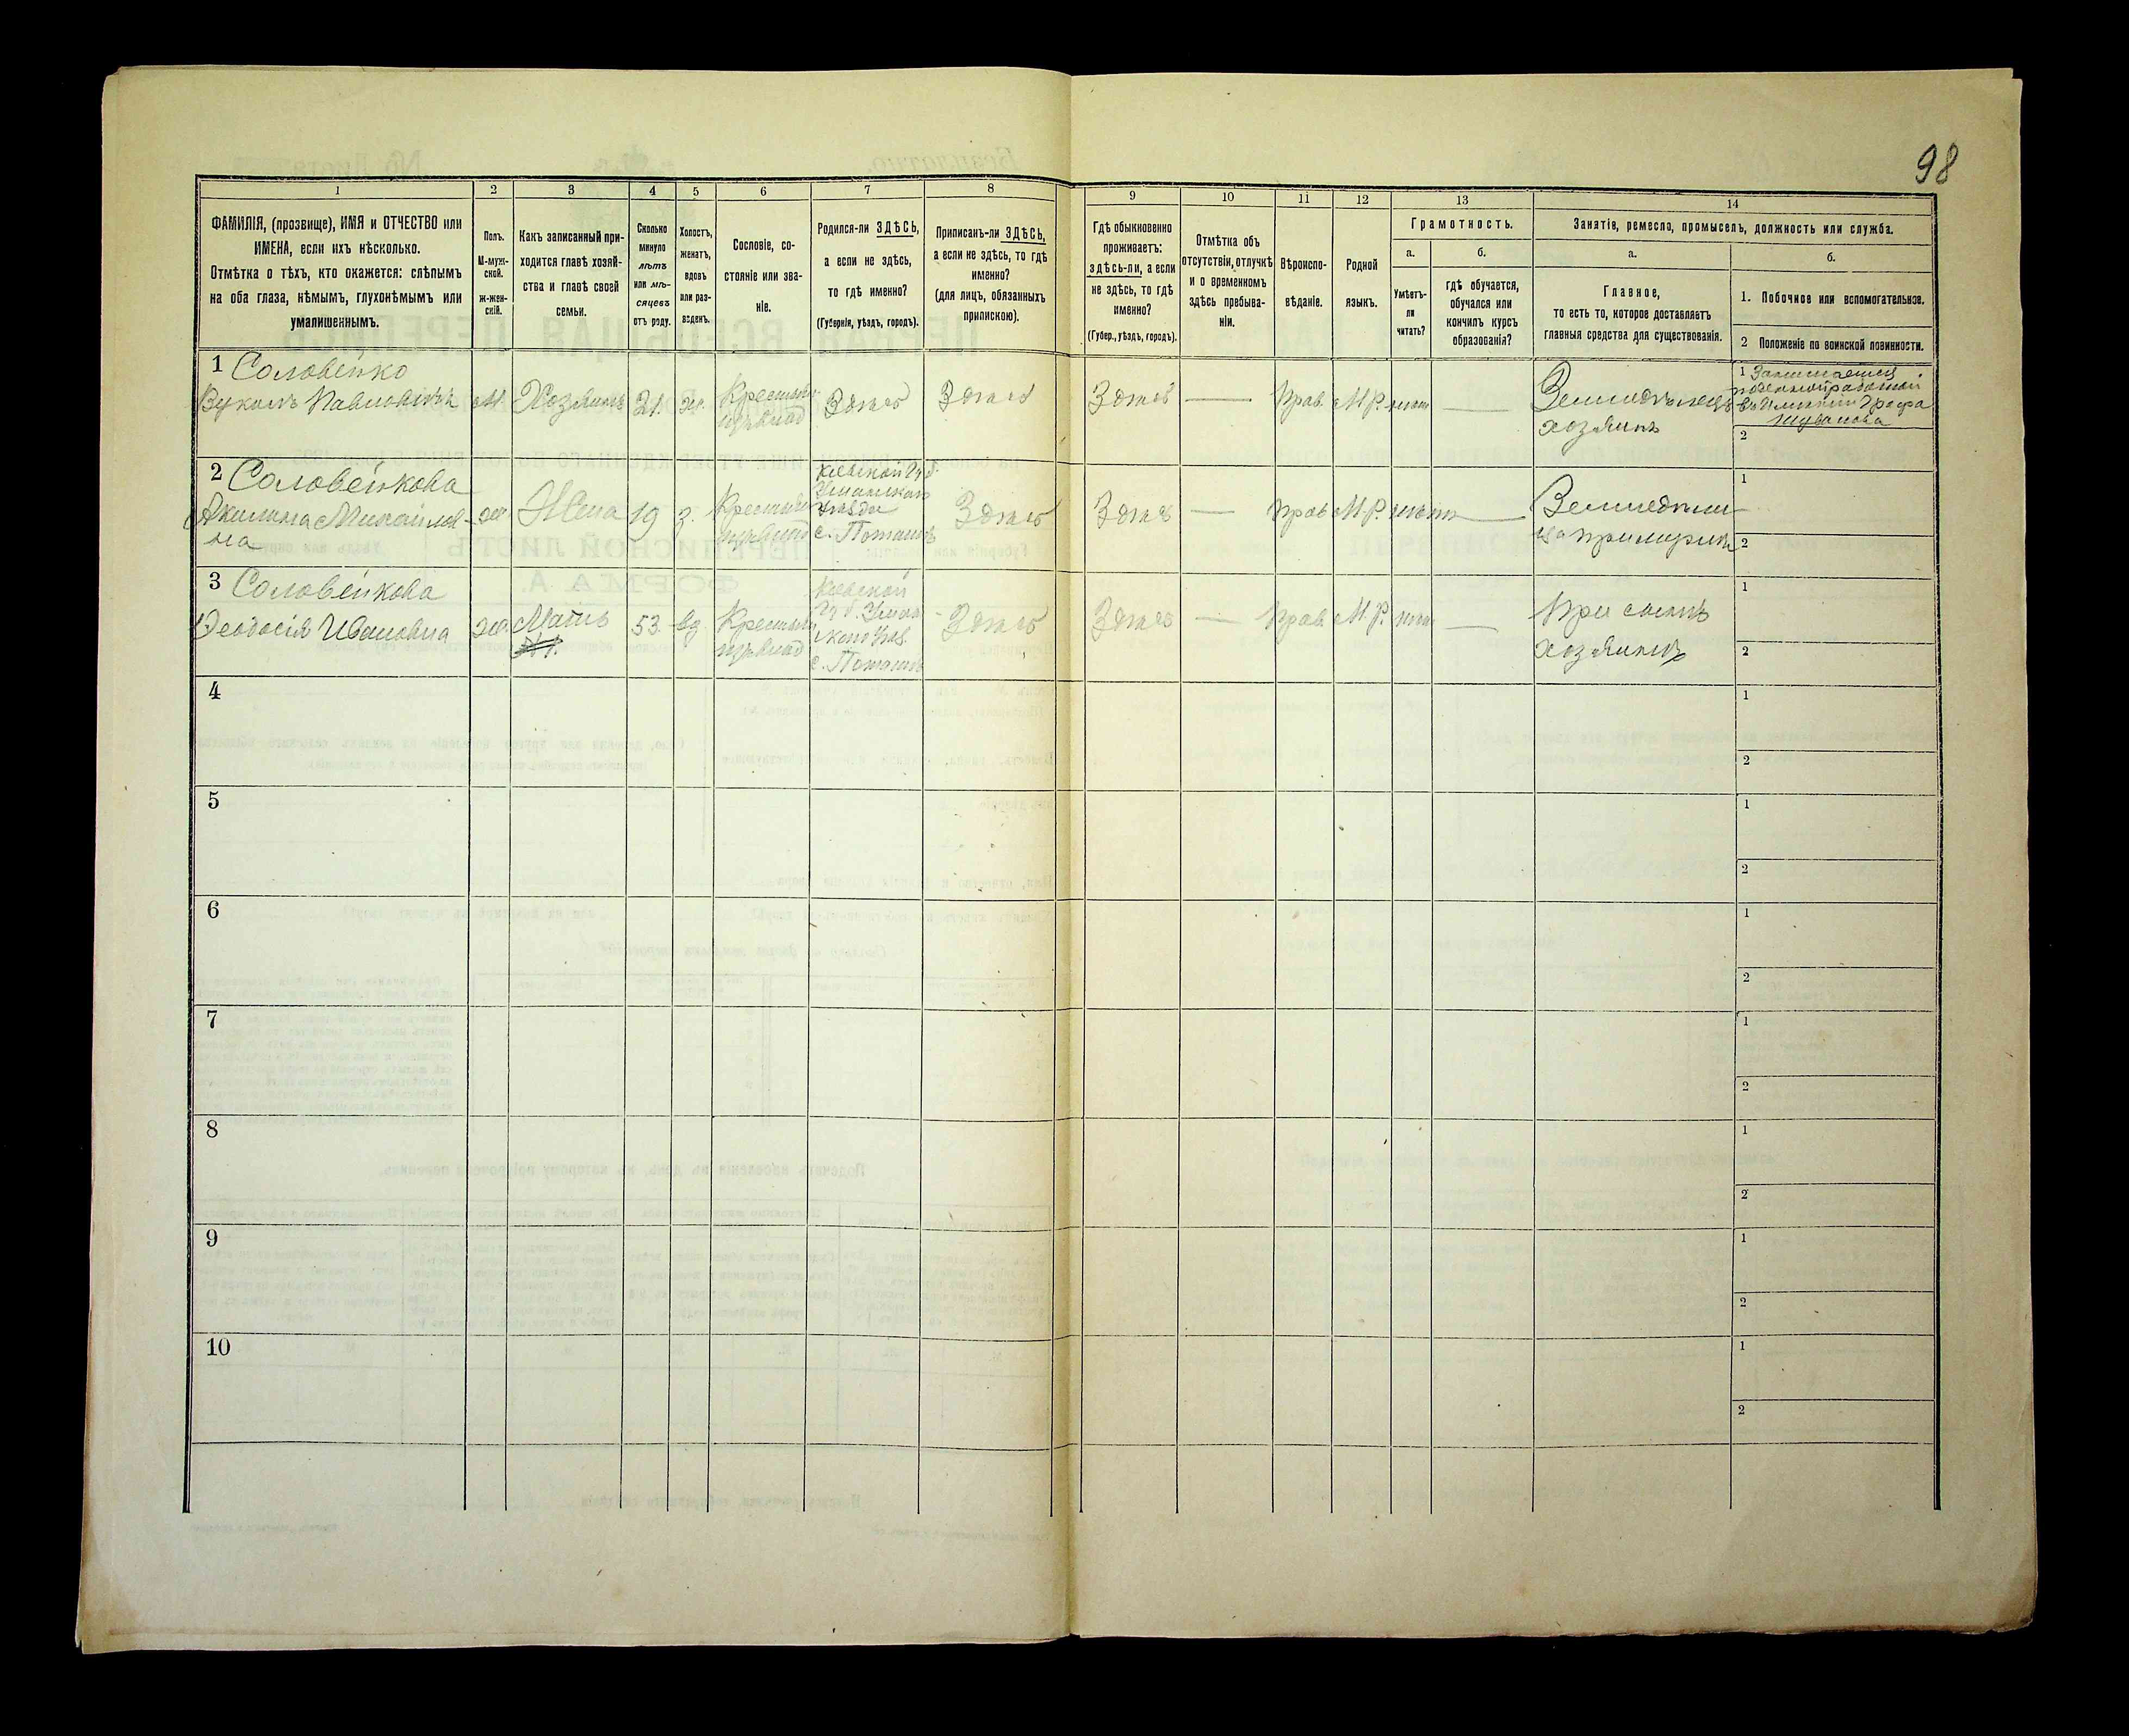 98
1 2 3 4 5 6 7 8 9 10 11 12 13 14
ФАМИЛІЯ, (прозвище), ИМЯ и ОТЧЕСТВО или
ИМЕНА, если ихъ нѣсколько.
Отмѣтка о тѣхъ, кто окажется: слѣпымъ
на оба глаза, нѣмымъ, глухонѣмымъ или
умалишеннымъ.
Полъ.
М-муж-
ской.
ж-жен-
скій.
Какъ записанный при-
ходится главѣ хозяй-
ства и главѣ своей
семьи.
Сколько
минуло
лѣтъ
или мѣ-
сяцевъ
отъ роду.
Холостъ,
женатъ,
вдовъ
или раз-
веденъ.
Сословіе, со-
стояніе или зва-
ніе.
Родился-ли ЗДѢСЬ,
а если не здѣсь,
то гдѣ именно?
(Губернія, уѣздъ, городъ).
Приписанъ-ли ЗДѢСЬ,
а если не здѣсь, то гдѣ
именно?
(для лицъ, обязанныхъ
припискою).
Гдѣ обыкновенно
проживаетъ:
здѣсь-ли, а если
не здѣсь, то гдѣ
именно?
(Губер., уѣздъ, городъ).
Отмѣтка объ
отсутствіи, отлучкѣ
и о временномъ
здѣсь пребыва-
ніи.
Вѣроиспо-
вѣданіе.
Родной
языкъ.
Грамотность.
а.
Умѣетъ-
ли
читать?
б.
гдѣ обучается,
обучался или
кончилъ курсъ
образованія?
Занятіе, ремесло, промыселъ, должность или служба.
а.
Главное,
то есть то, которое доставляетъ
главныя средства для существованія.
б.
1. Побочное или вспомогательное.
2 Положеніе по воинской повинности.
1 Соловейко
Вуколъ Павловичъ
М.
Хозяинъ
21.
жн.
Здѣсь
Здѣсь
Здѣсь
—
Прав.
М.Р.
нѣтъ
—
Земледѣлецъ
хозяинъ
1 Занимается
въ Имѣніи Графа
Шувалова
2
2 Соловейкова
Акилина Михайлов-
на
жн.
Жена
19
з.
Кіевской Губ.
Уманскаго
Уѣзда
с. Поташъ
Здѣсь
Здѣсь
—
Прав
М.Р.
нѣтъ
—
1
2
3 Соловейкова
Ѳеодосія Ивановна
жн.
Мать
53.
вд.
Кіевской
Губ. Уман
скаго Уѣз.
с. Поташъ
Здѣсь
Здѣсь
—
Прав.
М.Р.
нѣтъ
—
При сынѣ
хозяинѣ
1
2
4
1
2
5
1
2
6
1
2
7
1
2
8
1
2
9
1
2
10
1
2